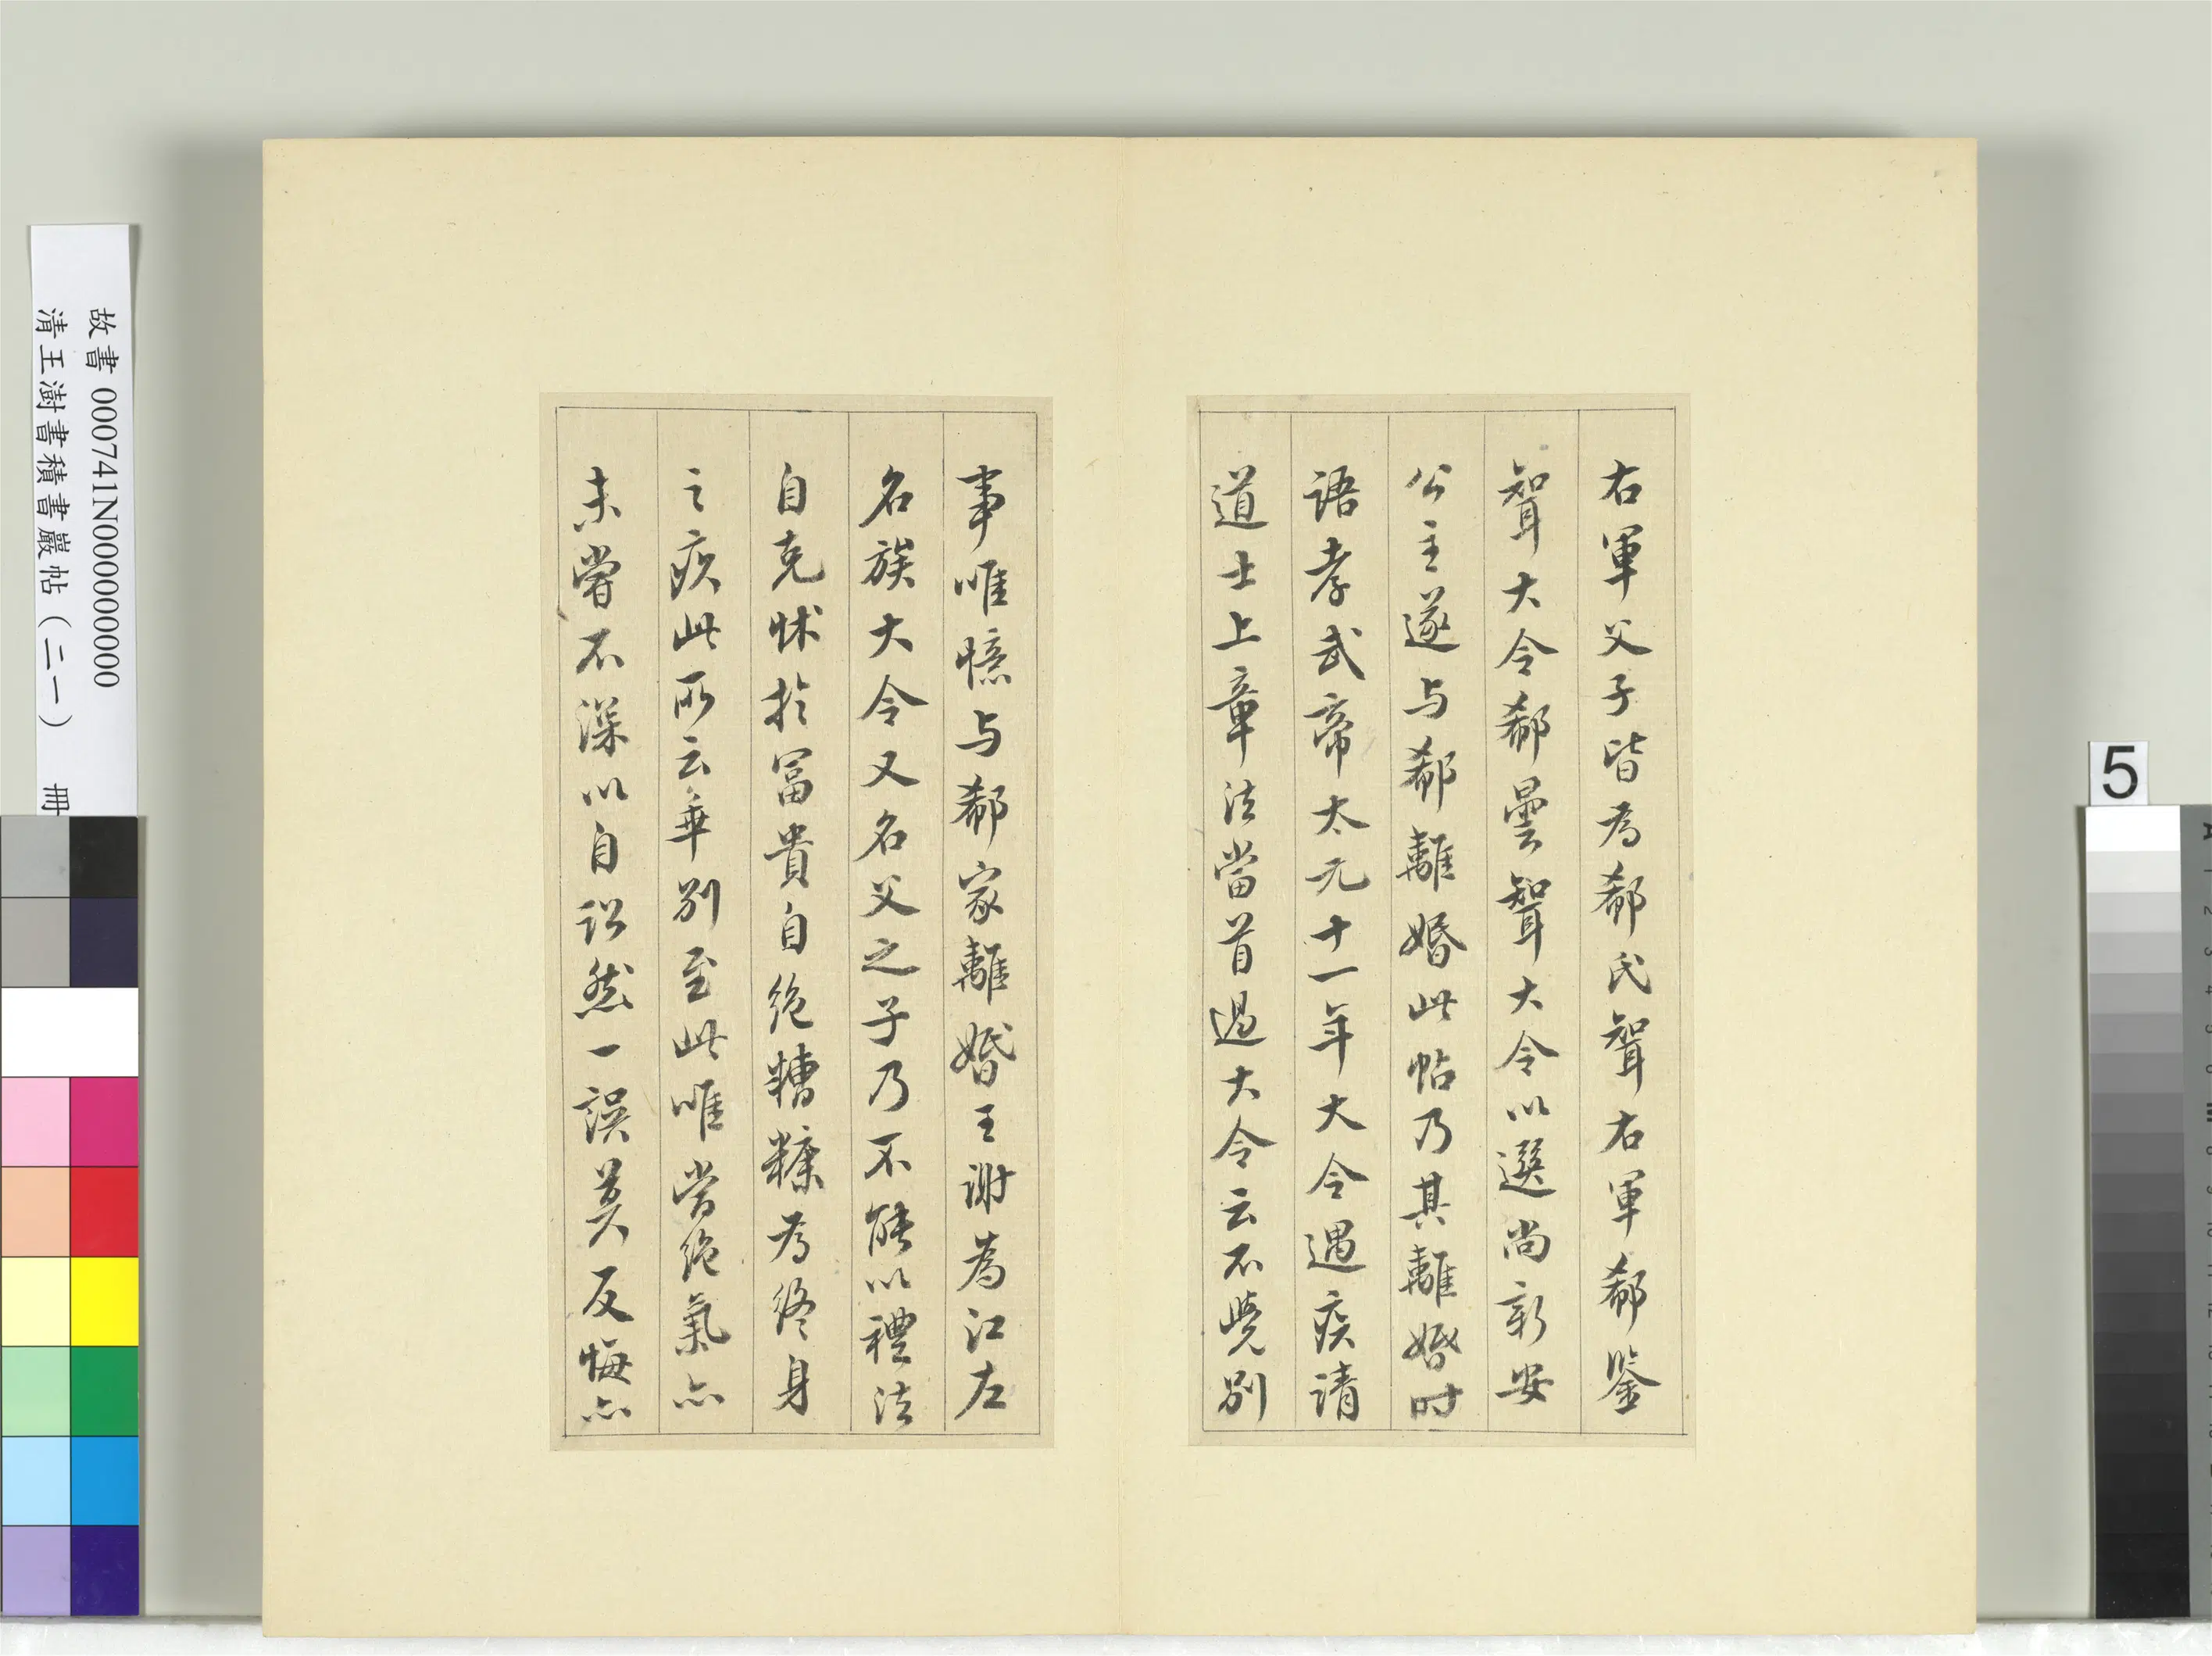 右軍父子皆為郗氏壻右軍郗鑒
壻大令郗曇壻大令以選尚新安
公主遂与郗離婚此帖乃其離婚時
語孝武帝太元十一年大令遇疾請
道士上章法當首過大令云不覺別
事唯憶与郗家離婚王謝為江左
名族大令又名父之子乃不能以禮法
自克怵於富貴自絶糟糠為終身
之疚此所云乖別至此唯當絶氣亦
未嘗不深以自訟然一誤莫反悔亦
故書 000741N000000000
清王澍書積書巖帖（二一） 冊
5